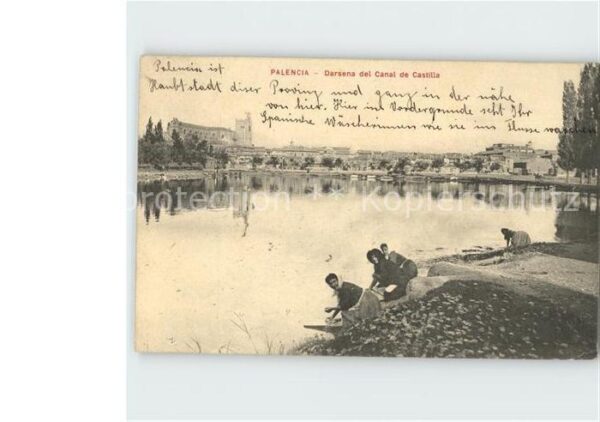 PALENCIA - Darsena del Canal de Castilla
Palencia ist
Haubtstadt diser Proving und ganz in der nähe
von hier. Hier im Vordergrunde seht Ihr
Spanische Wäscherinnen wie sie im Flusse waschen
protection Kopierschutz